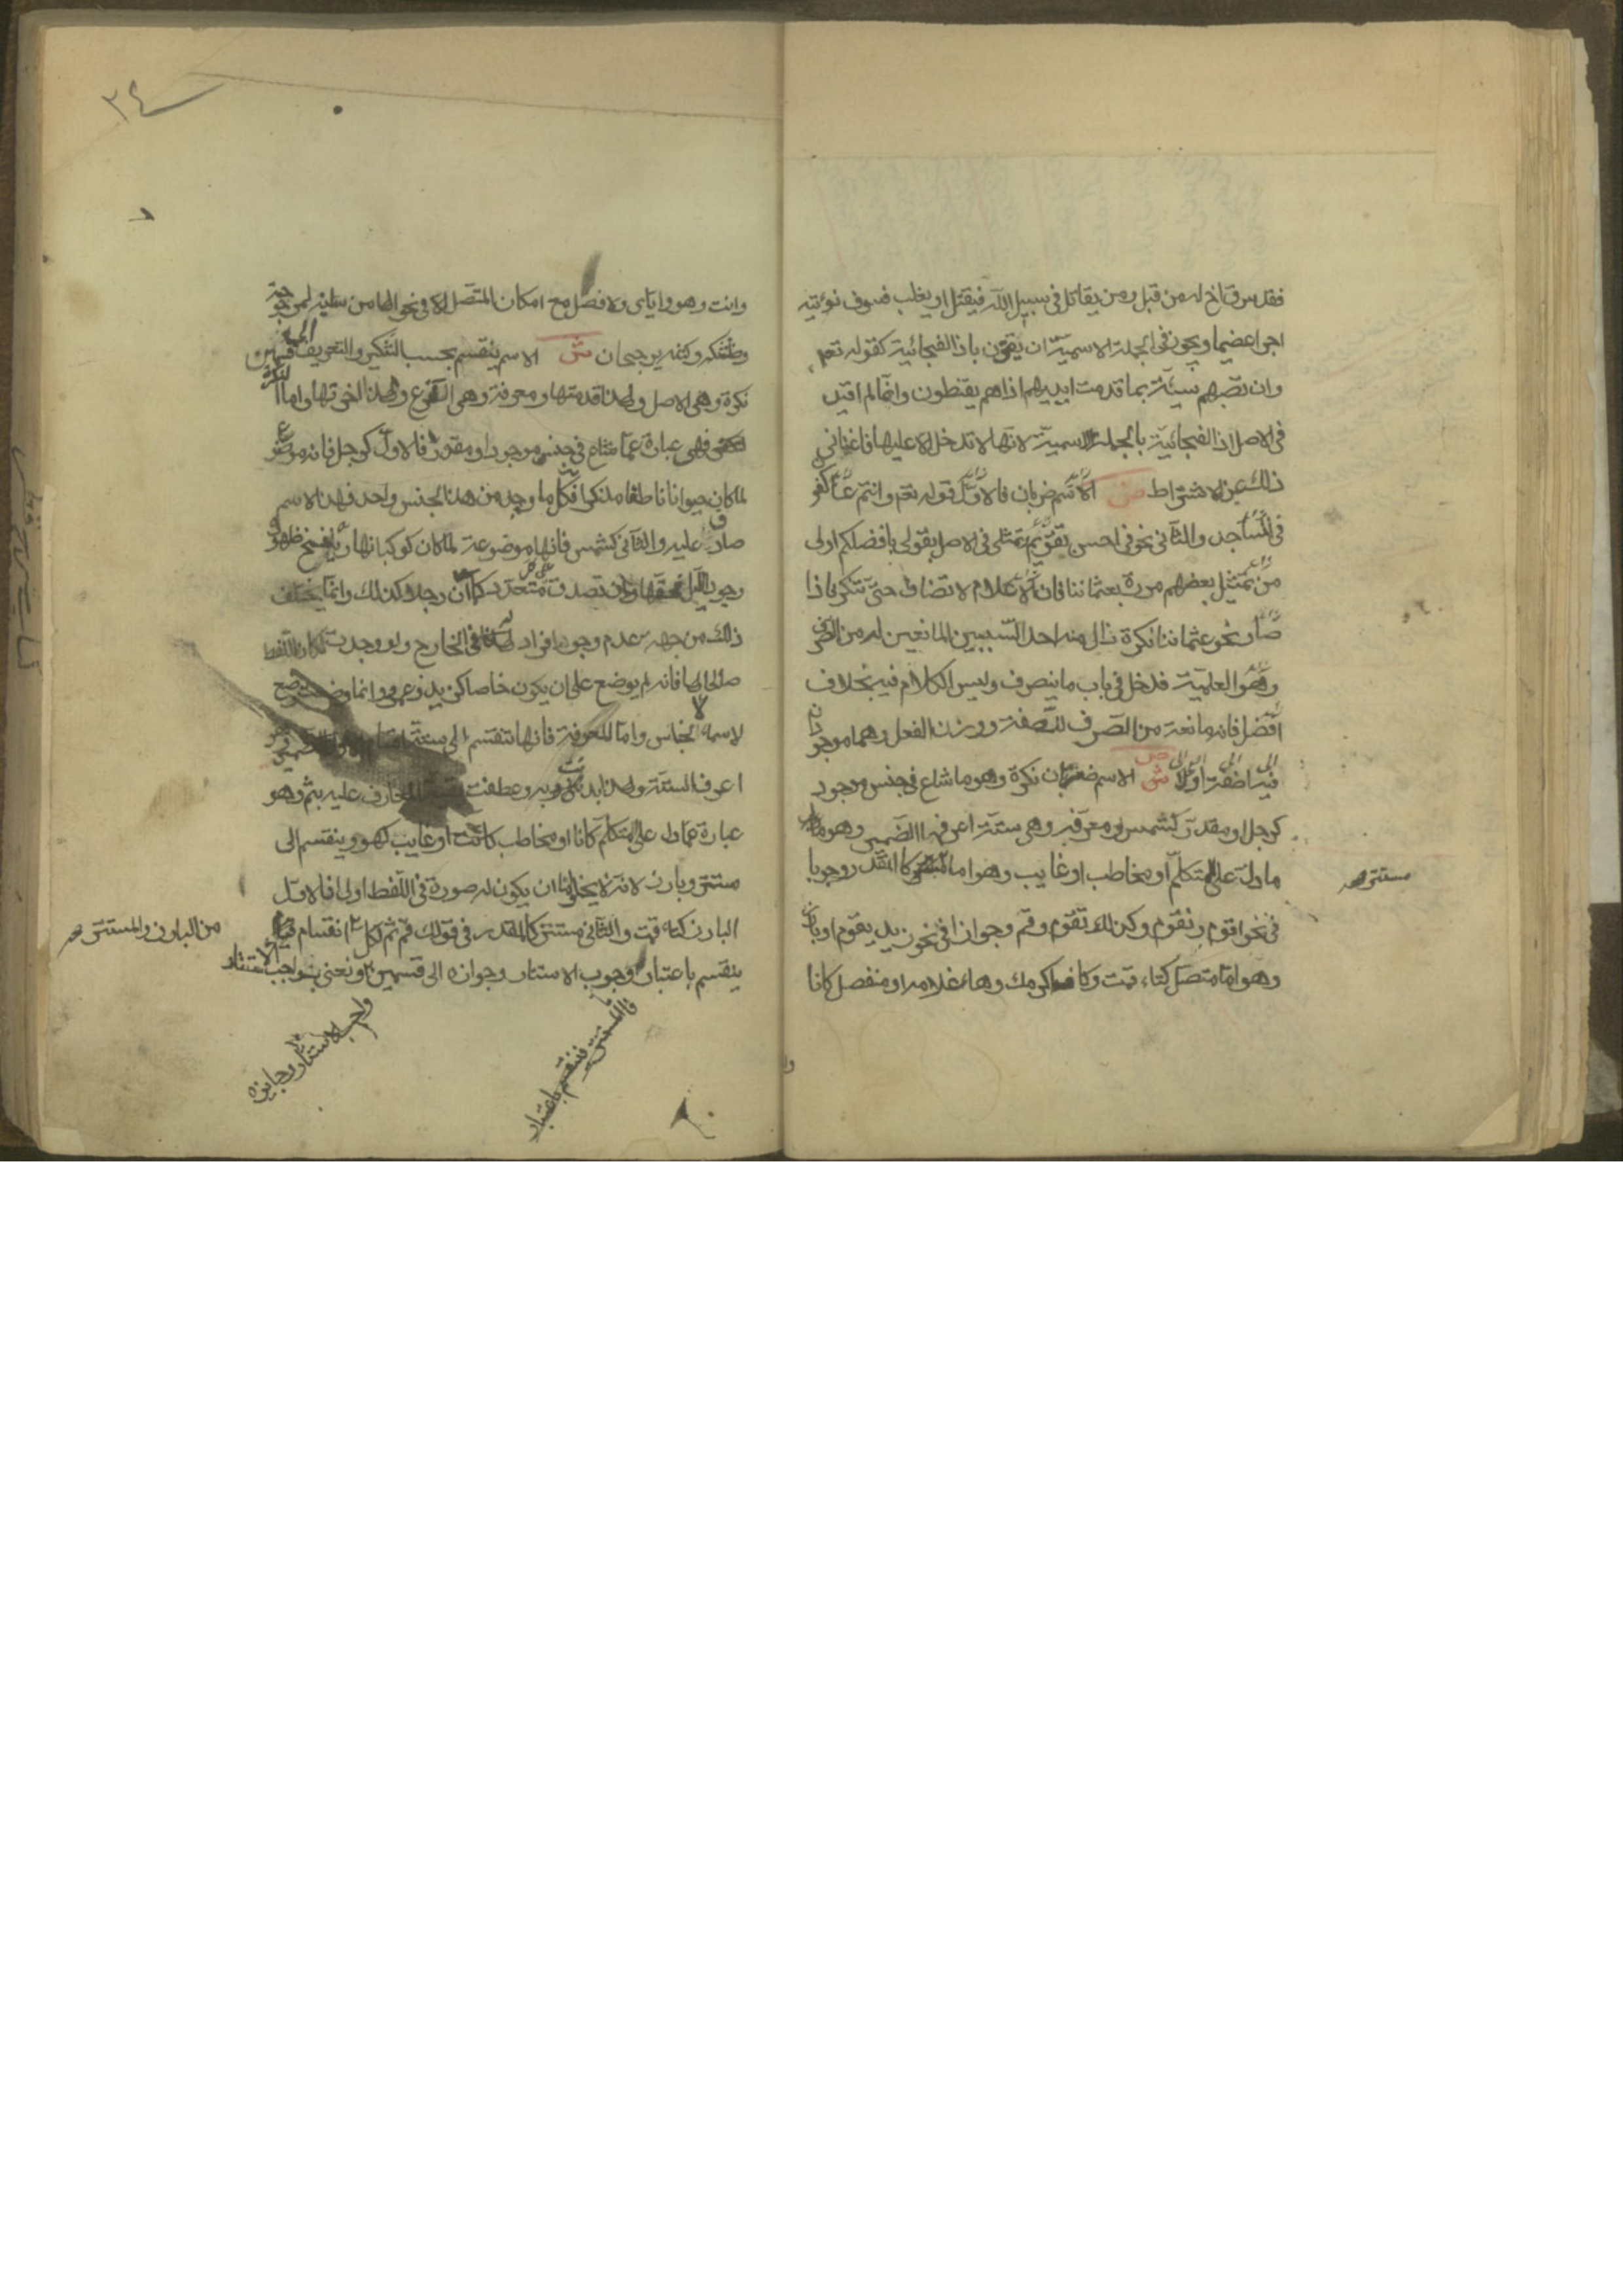 فقد سرق اخ له من قبل ومن يقاتل في سبيل الله فيقتل او يغلب فسوف نؤتيه
اجرا عضيما ويجوز في الجملة الاسمية ان يقترن باذا الفجائية كقوله تعم
وان تصبهم سيئة بما قدمت ايديهم اذا هم يقنطون وانما لم اقيد
في الاصل اذا الفجائية بالجملة الاسمية لانها لا تدخل الا عليها فاغناني
ذلك عن الاشتراط ص الاسم ضربان فالاول قوله تعم وانتم عاكفو
في المساجد والثاني نحو في احسن تقويم تمثلي في الاصل بقولي بافضلكم اولى
من تمثيل بعضهم مررة بعثماننا فان الاعلام لا تضاف حتى تنكر فاذا
صار نحو عثماننا نكرة زال منه احد السببين المانعين له من الصرف
وهو العلمية فدخل في باب ما ينصرف وليس الكلام فيه بخلاف
افضل فانه مانعة من الصرف للصفة ووزن الفعل وهما موجودان
فيه اضفته اولا ش الاسم ضربان نكرة وهو ما شاع في جنس موجود
كرجل او مقدر كشمس ومعرفه وهي ستة اعرفها الضمير وهو ما
ما دل على المتكلم او مخاطب او غايب وهو اما مستتر كالمقدر وجوبا
مستتر صح
في نحو اقوم ونقوم وكذلك تقوم وقم وجوازا في نحو زيد يقوم او بارز
وهو اما متصل كتاء قمت وكاف اكرمك وهاء غلامه او منفصل كانا
٣٤
وانت وهو واياي ولا فصل مع امكان المتصل الا في نحو الها من سلنيه لمرجوحية
وظننتكه وكنته برجحان ش الاسم ينقسم بحسب التنكير والتعريف الى قسمين
نكرة وهي الاصل ولهذا قدمتها ومعرفة وهي الفرع ولهذا اخرتها واما النكرة
فهي عبارة عما شاع في جنس موجود او مقدر فالاول كرجل فانه موضوع
لما كان حيوانا ناطقا مذكرا فكل ما وجد من هذا الجنس واحد فهذا الاسم
صادق عليه والثاني كشمس فانها موضوعة لما كان كوكبا نهاريا ينسخ ظهوره
وجود الليل فحقها ان تصدق على متعدد كما ان رجلا كذلك وانما يخلف
ذلك من جهة عدم وجود افراد لها في الخارج ولو وجدت لكان اللفظ
صالحا لها فانه لم يوضع على ان يكون خاصا كزيد وعمرو وانما وضع
لاسماء الاجناس واما المعرفة فانها تنقسم الى ستة اقسام
اعرف الستة ولهذا بدئت به وعطفت بقية المعارف عليه بثم وهو
عبارة عما دل على متكلم كانا او مخاطب كانت او غايب كهو وينقسم الى
مستتر وبارز لانه لا يخلوا ان يكون له صورة في اللفظ اولا فالاول
البارز كتاء قمت والثاني مستتر كالمقدر في قولك قم ثم لكل
من البارز والمستتر صح
ينقسم باعتبار وجوب الاستتار وجوازه الى قسمين ونعني بواجب الاستتار
فالمستتر ينقسم باعتبار
واجب الاستتار وجايزه